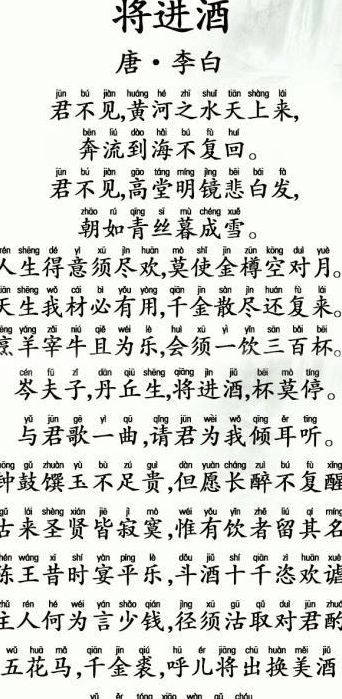 将进酒
唐·李白
jūn bú jiàn huáng hé zhī shuǐ tiān shàng lái
君不见,黄河之水天上来,
bēn liú dào hǎi bú fù huí
奔流到海不复回。
jūn bú jiàn gāo táng míng jìng bēi bái fà
君不见,高堂明镜悲白发,
zhāo rú qīng sī mù chéng xuě
朝如青丝暮成雪。
rén shēng dé yì xū jìn huān mò shǐ jīn zūn kōng duì yuè
人生得意须尽欢,莫使金樽空对月。
tiān shēng wǒ cái bì yǒu yòng qiān jīn sàn jìn huán fù lái
天生我材必有用,千金散尽还复来。
pēng yáng zǎi niú qiě wéi lè huì xū yì yǐn sān bǎi bēi
烹羊宰牛且为乐,会须一饮三百杯。
cén fū zǐ dān qiū shēng qiāng jìn jiǔ bēi mò tíng
岑夫子,丹丘生,将进酒,杯莫停。
yǔ jūn gē yì qǔ qǐng jūn wèi wǒ qīng ěr tīng
与君歌一曲,请君为我倾耳听。
zhōng gǔ zhuàn yù bù zú guì dàn yuàn cháng zuì bú fù xǐng
钟鼓馔玉不足贵,但愿长醉不复醒
gǔ lái shèng xián jiē jì mò wéi yǒu yǐn zhě liú qí míng
古来圣贤皆寂寞,惟有饮者留其名
chén wáng xī shí yàn píng lè dǒu jiǔ shí qiān zì huān xuè
陈王昔时宴平乐,斗酒十千恣欢谑
zhǔ rén hé wéi yán shǎo qián jìng xū gū qǔ duì jūn zhuó
主人何为言少钱,径须沽取对君酌
wǔ huā mǎ qiān jīn qiú hū ér jiāng chū huàn měi jiǔ
五花马,千金裘,呼儿将出换美酒
yǔ ěr tóng xiāo wàn gǔ chóu